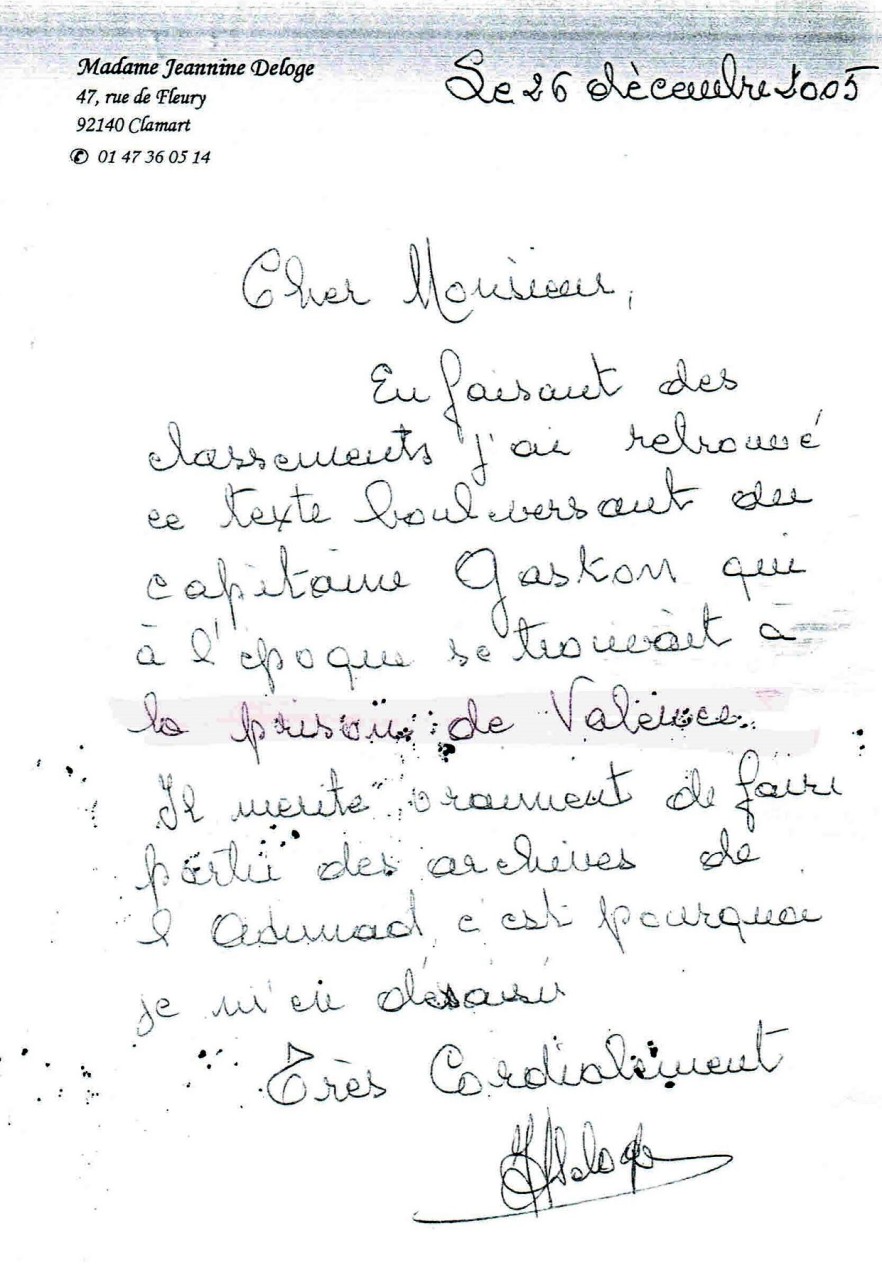 Madame Jeannine Deloge
47, rue de Fleury
92140 Clamart
✆ 01 47 36 05 14
Le 26 décembre 2005
Cher Monsieur,
En faisant des
classements j'ai retrouvé
ce texte boulversant du
capitaine Gaskon qui
à l'époque se trouvait à
la prison de Valence.
Il merite vraiment de faire
partie des archives de
l'Adumad, c'est pourquoi
je m'en désaisi
Très Cordialement
JDeloge